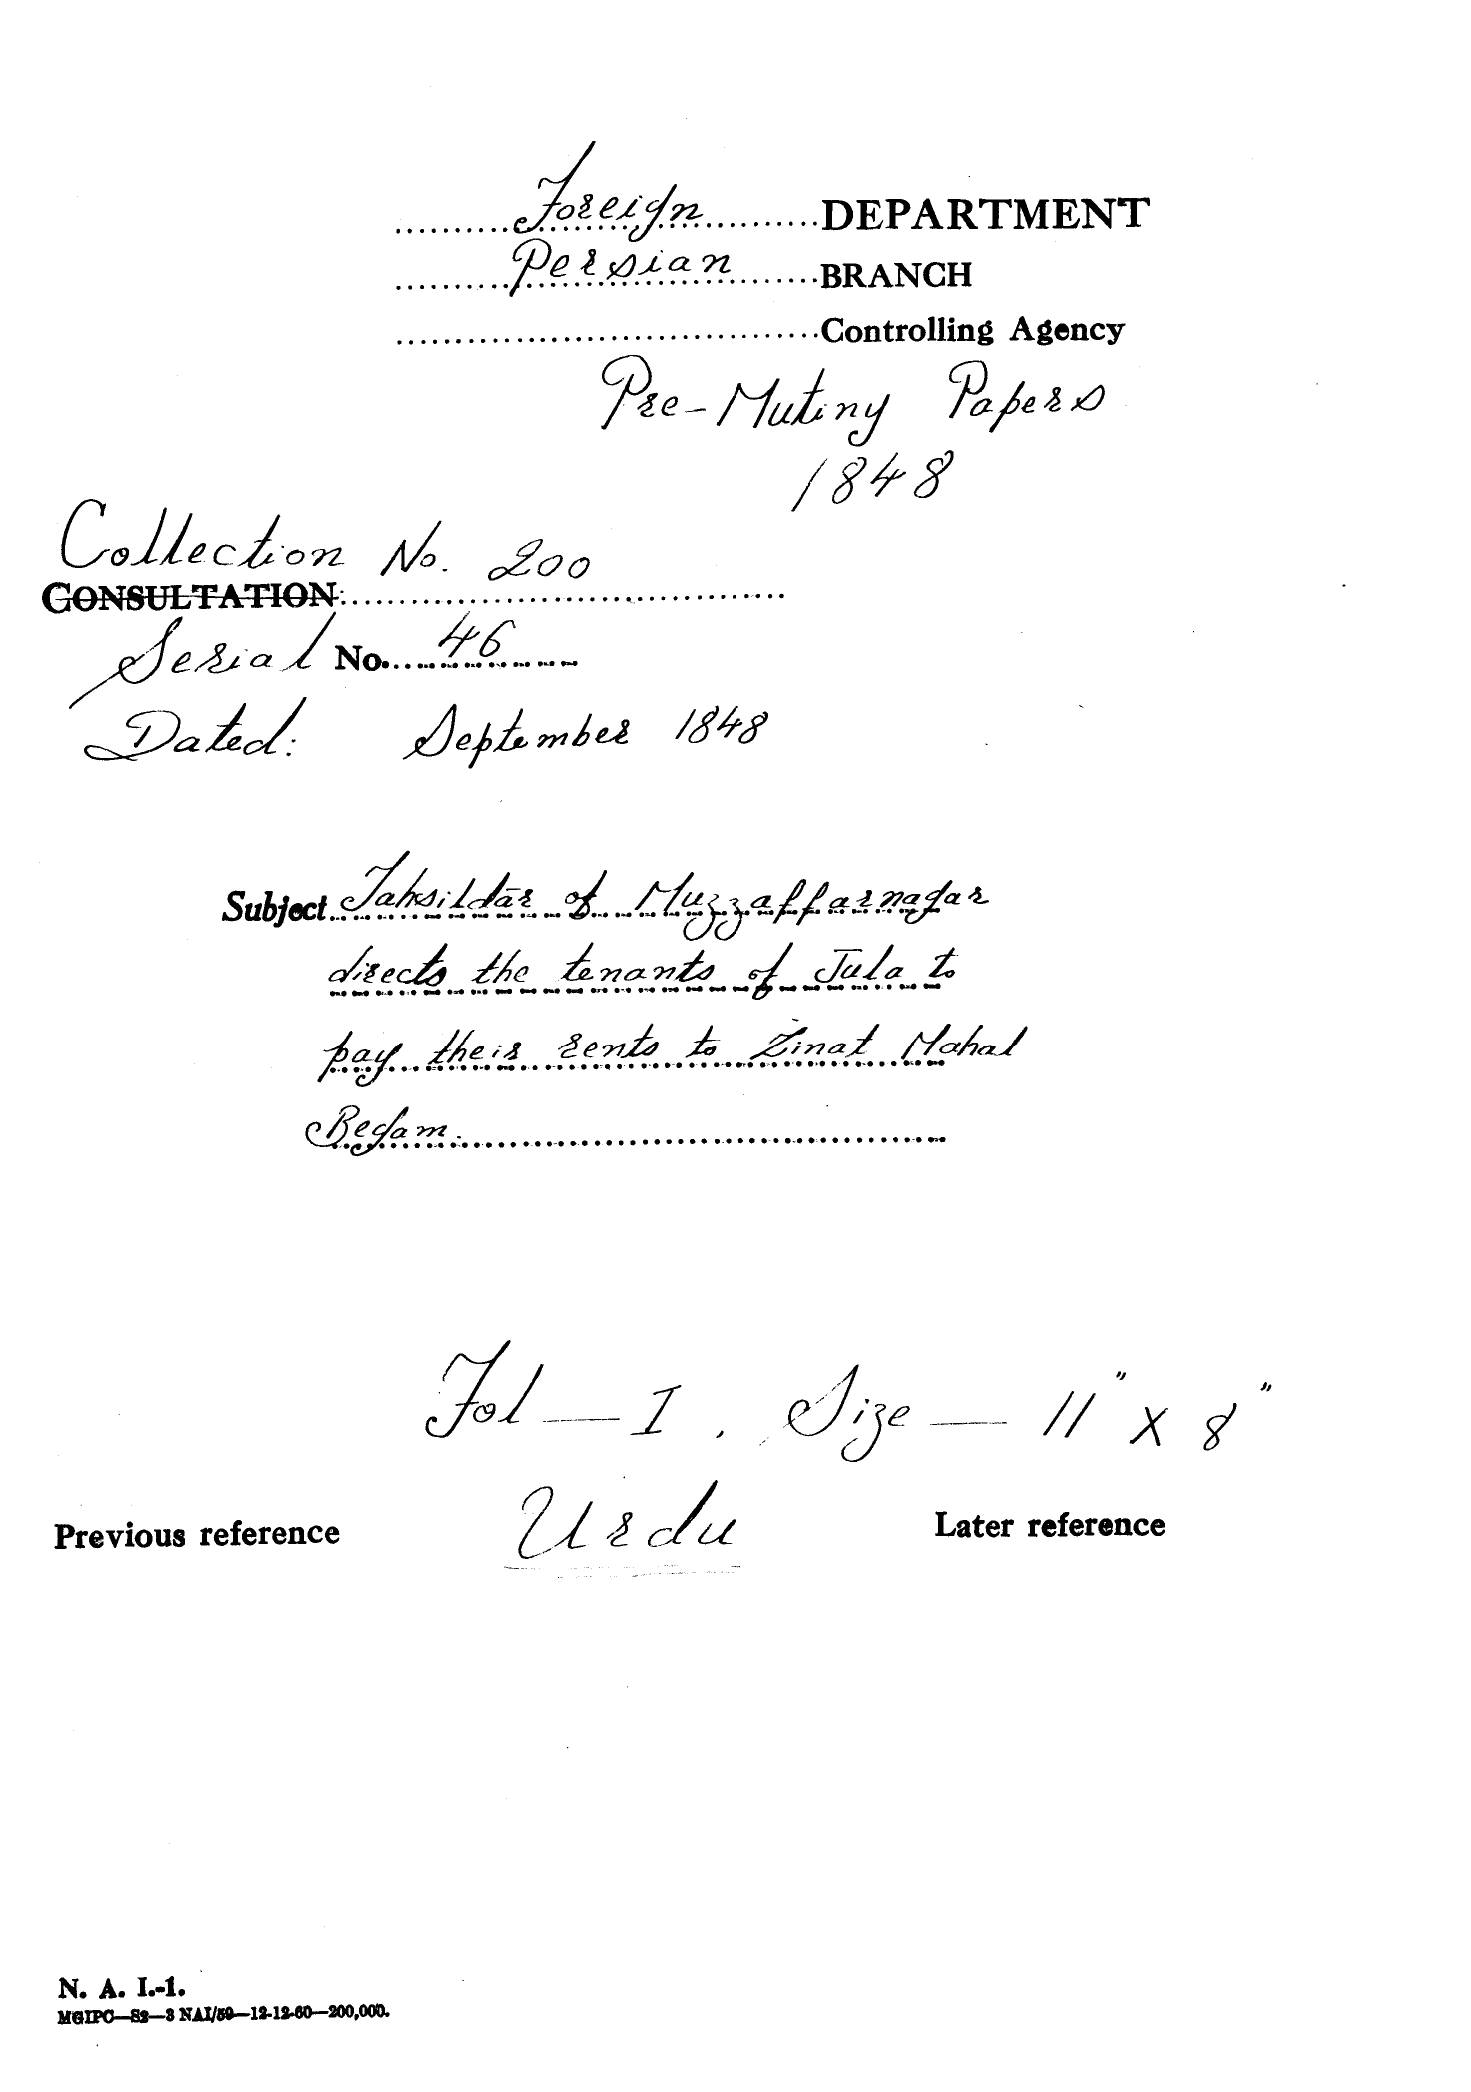 Foreign DEPARTMENT
Persian BRANCH
Controlling Agency
Pre-Mutiny Papers
1848
Collection No. 200
CONSULTATION
Serial No. 46
Dated: September 1848
Subject Tahsildār of Muzzaffarnagar
directs the tenants of Jula to
pay their rents to Zinat Mahal
Begam.
Fol — I, Size — 11" X 8"
Urdu
Previous reference Later reference
N. A. I.-1.
MGIPC—S2—3 NAI/59—12-12-60—200,000.